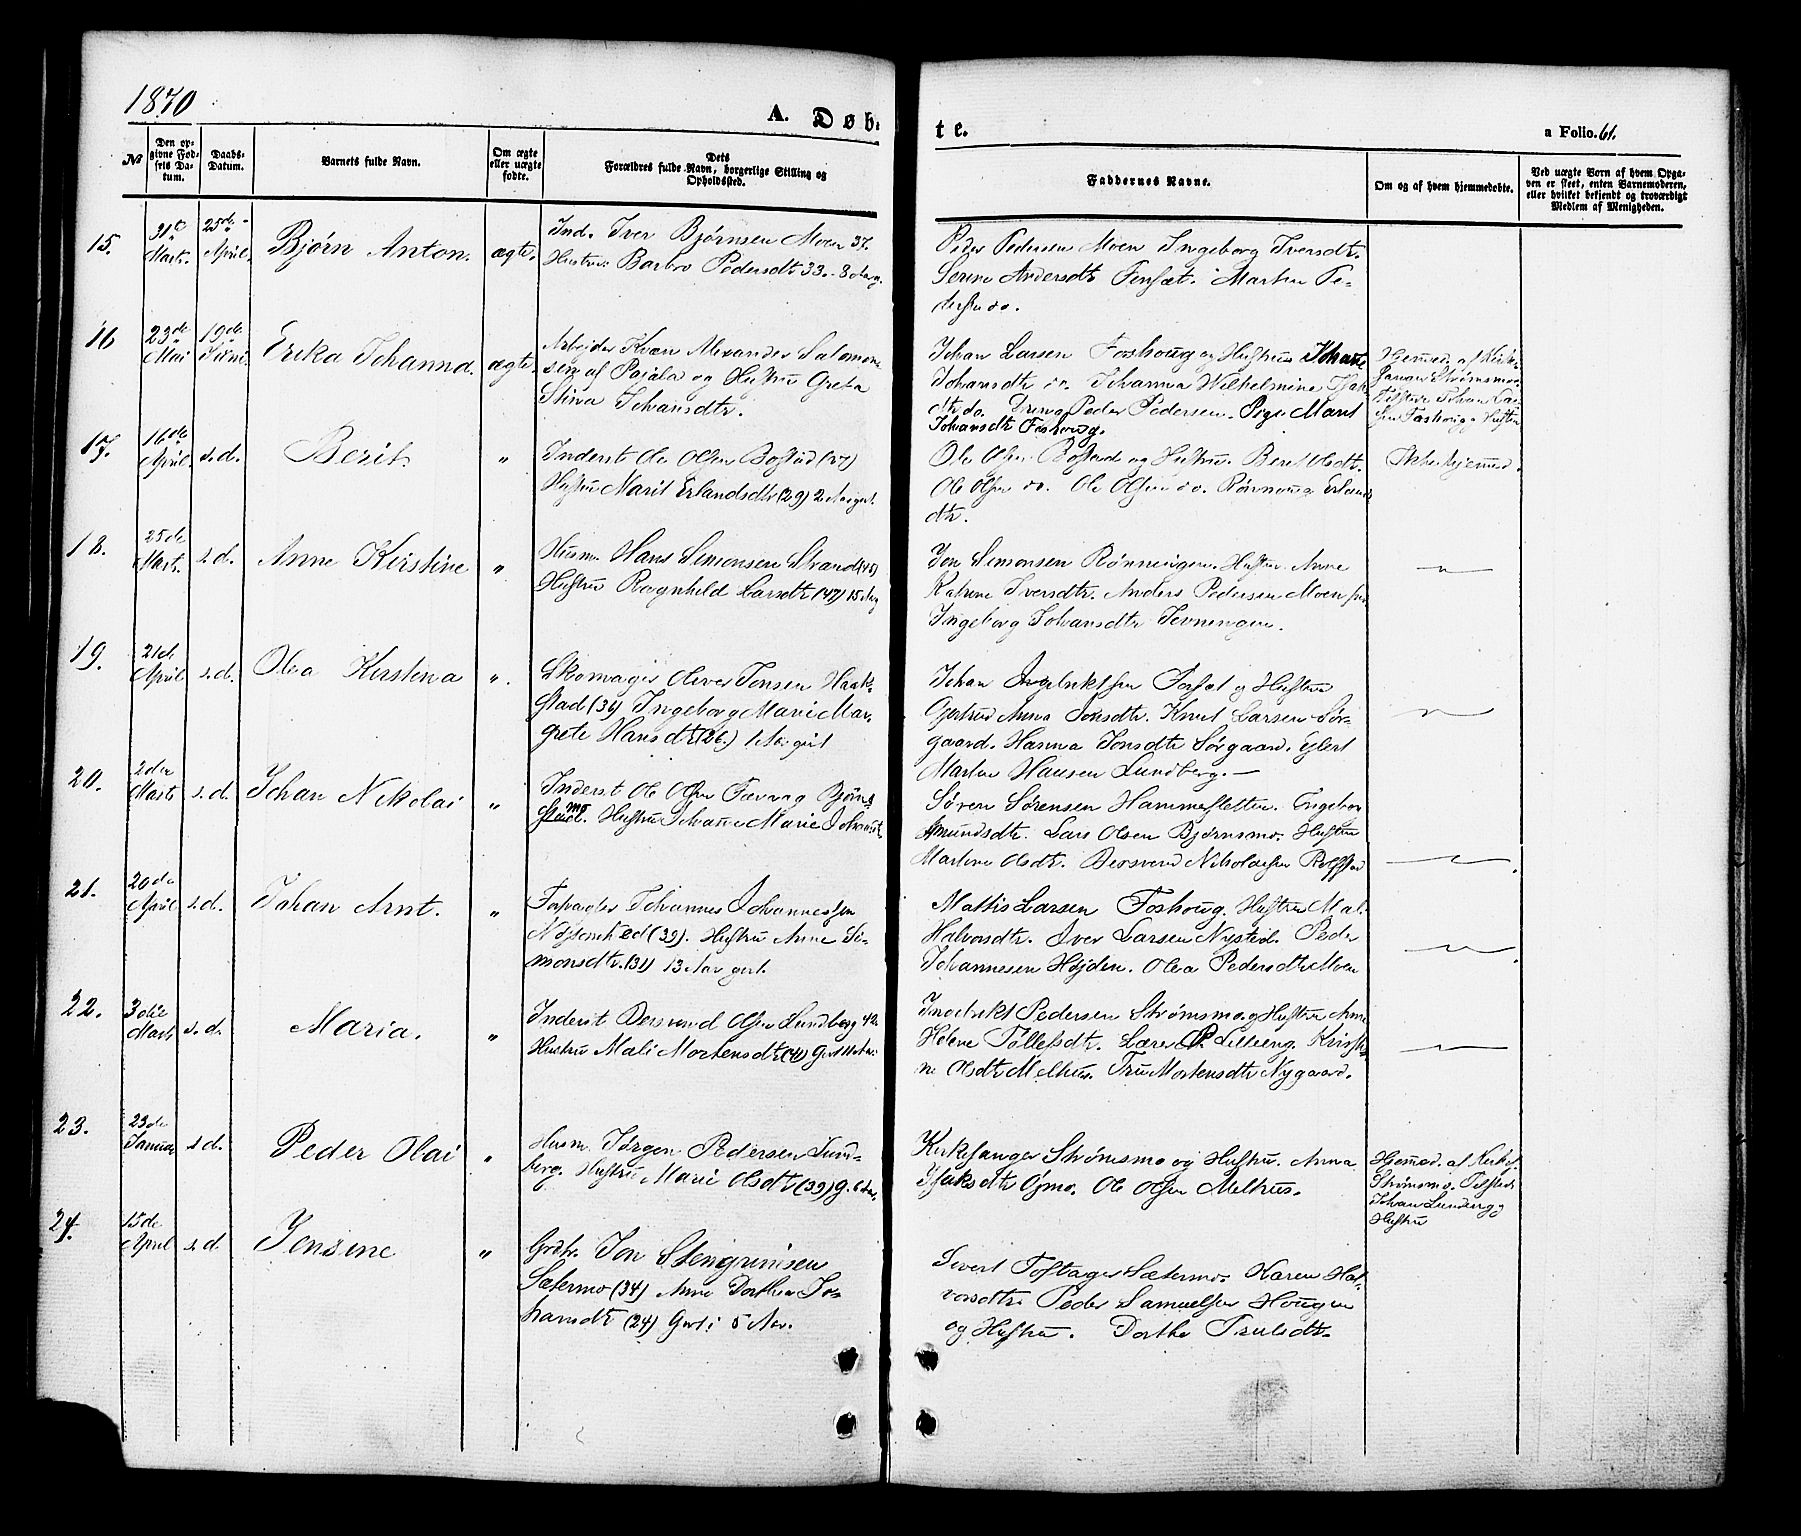 1870
A. Døb-
te.
a Folio. 61.
No
Den op-
givne Fød-
sels Da-
tum.
Daabs-
Datum.
Barnets fulde Navn.
Om ægte
eller uægte
fødte.
Dets
Forældres fulde Navn, borgerlige Stilling og
Opholdssted.
Faddernes Navne.
Om og af hvem hjemmedøbte.
Ved uægte Børn af hvem Opga-
ven er skeet, enten Barnemoderen,
eller hvilket bekjendt og troværdigt
Medlem af Menigheden.
15.
31te
Marts.
25de
April.
Bjørn Anton.
ægte.
Ind. Iver Bjørnsen Moen 37.
Hustru Barbro Pedersdtr 33. 8
Peder Pedersen Moen Ingeborg Iversdtr.
Serine Andersdtr Fensæt. Martin Pe-
dersen do.
16
23de
Mai
19de
Juni
Erika Johanna.
ægte.
Arbeider Kvæn Alexander Salomon-
sen af Pajala og Hustru Greta
Stina Johansdtr.
Johan Larsen Foshoug og Hustru Johanne
Johansdtr do. Johanna Wilhelmine
dtr do. Dreng Peder Pedersen. Pige Marit
Johansdtr Foshoug.
Hjemmed. af Kirke-
sanger Strømsmo.
Tilstede Johan Lar-
sen Foshoug og Hustru
17.
16de
April.
s.d.
Berit.
"
Inderst Ole Olsen Bostad (27)
Hustru Marit Erlandsdtr (29) 2 Aar givt.
Ole Olsen Bostad og Hustru. Beret Olsdtr.
Ole Olsen do. Ole Olsen do. Rønnoug Erlands
dtr.
Ikke hjemmed.
18.
25de
Marts.
s.d.
Anne Kirstine
"
Husm. Hans Simonsen Strand (45)
Hustru Ragnhild Larsdtr (47) 15 Aar g
Jon Simonsen Rønningen. Hustru Anne
Katrine Iversdtr. Anders Pedersen Moen
Ingeborg Johansdtr
19.
21de
April
s.d.
Olea Kirstina
".
Skomager Oliver Jonsen Haak-
stad (36) Ingeborg Marie Mar-
grete Hansdtr (26.) 1 Aar givt
Johan Ingebriktsen Fossæt og Hustru
Gjertrud Anna Jonsdtr. Knut Larsen Sør-
gaard. Hanna Jonsdtr Sørgaard. Eilert
Martin Hansen Lundberg. —
20.
2den
Marts
s.d.
Johan Nikolai
"
Inderst Ole Olsen Bjørns-
mo. Hustru Johanne Marie
Søren Sørensen Hammersletten. Ingebor
Amundsdtr. Lars Olsen Bjørnsmo. Hustru
Martine Olsdtr. Bersvend Nikolaisen
21.
20de
April
s.d.
Johan Arnt.
"
Johannes Johannessen
(39). Hustru Anne Si-
monsdtr. (31) 13 Aar givt.
Mattis Larsen Foshoug. Hustru Mal.
Halvorsdtr. Iver Larsen Nysted. Peder
Johannesen Højden. Olea Pedersdtr Moen
22.
30te
Marts
s.d.
Maria.
"
Inderst Bersvend Olsen Lundberg 42.
Hustru Mali Mortensdtr (41) Givt 11 Aar.
Ingebrikt Pedersen Strømsmo og Hustru Anne
Helene Tollefsdtr. Lærer P. Lilleeng. Kristi-
ne Olsdtr Melhus. Fru Mortensdtr Nygaard.
23.
23de
Januar
s.d.
Peder Olai
"
Husm. Jørgen Pedersen Lund-
berg. Hustru Marie Olsdtr (39) g. 6 Aar.
Kirkesanger Strømsmo og Hustru. Anna
Isaksdtr Øjmo. Ole Olsen Melhus.
Hjemmed. af Kirkes.
Strømsmo. Tilstede
Johan Lundberg og
Hustru
24.
15de
April
s.d.
Jensine
"
Grdbr. Jon Stengrimsen
Sætermo (34) Anne Dorthea Jo-
hansdtr (24) Givt i 5 Aar.
Sivert Toftager Sætermo. Karen Hal-
vorsdtr. Peder Samuelsen Hougen
og Hustru. Dorthe Trulsdtr.